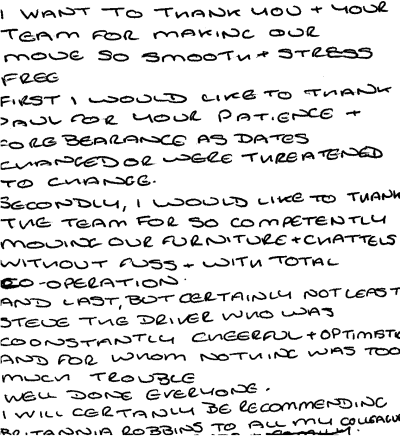 I WANT TO THANK YOU + YOUR
TEAM FOR MAKING OUR
MOVE SO SMOOTH + STRESS
FREE
FIRST I WOULD LIKE TO THANK
PAUL FOR YOUR PATIENCE +
FOREBEARANCE AS DATES
CHANGED OR WERE THREATENED
TO CHANGE.
SECONDLY, I WOULD LIKE TO THANK
THE TEAM FOR SO COMPETENTLY
MOVING OUR FURNITURE + CHATTELS
WITHOUT FUSS + WITH TOTAL
CO-OPERATION.
AND LAST, BUT CERTAINLY NOT LEAST
STEVE THE DRIVER WHO WAS
COONSTANTLY CHEERFUL + OPTIMISTIC
AND FOR WHOM NOTHING WAS TOO
MUCH TROUBLE
WELL DONE EVERYONE.
I WILL CERTANLY BE RECOMMENDING
BRITANNIA ROBBINS TO ALL MY COLLEAGUE